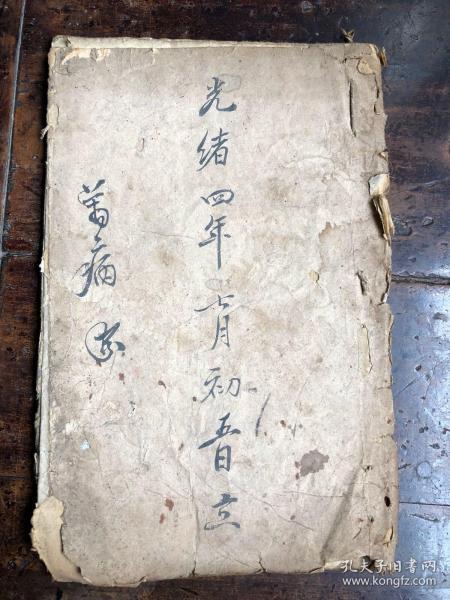 光緒四年七月初五日立
萬病
孔夫子旧书网
www.kongfz.com